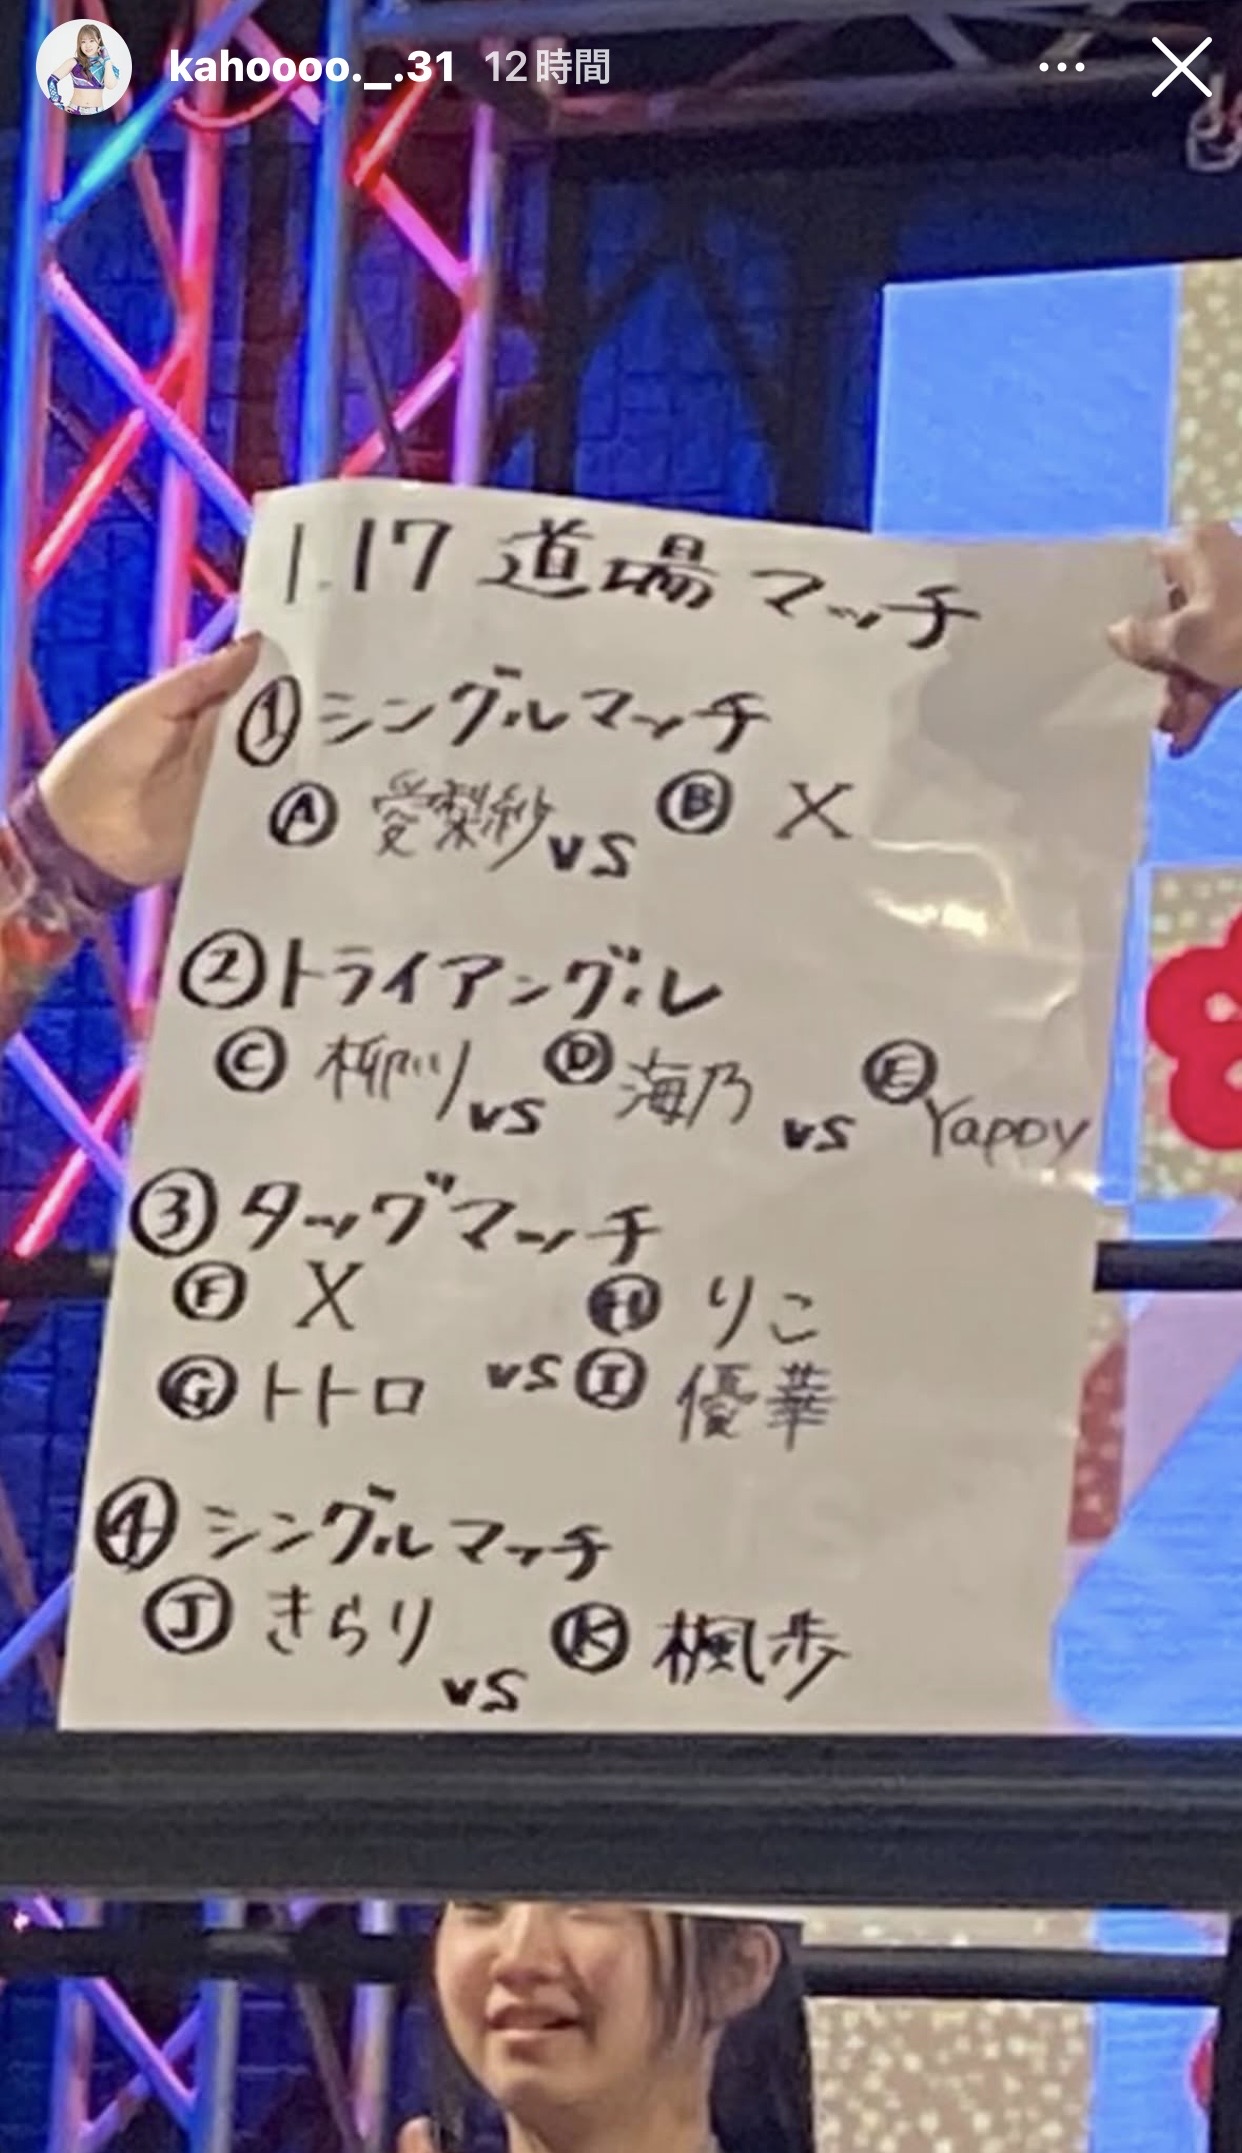 kahoooo._.31 12時間
1.17 道場マッチ
①シングルマッチ
Ⓐ 愛梨紗 vs Ⓑ X
②トライアングル
Ⓒ 柳川 vs Ⓓ 海乃 vs Ⓔ Yappy
③タッグマッチ
Ⓕ X Ⓗ りこ
Ⓖ トトロ vs Ⓘ 優華
④シングルマッチ
Ⓙ きらり vs Ⓚ 楓歩